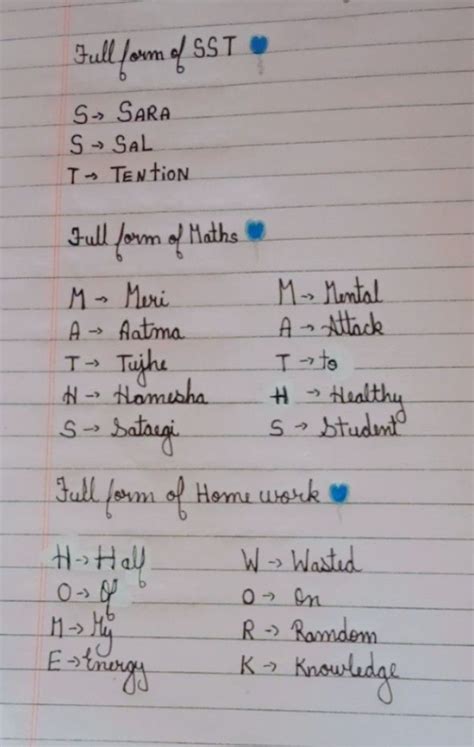 Full form of SST
S → SARA
S → SAL
T → TENtION
Full form of Maths
M → Meri M → Mental
A → Aatma A → Attack
T → Tujhe T → to
H → Hamesha H → Healthy
S → Sataegi S → Student
Full form of Home work
H → Half W → Wasted
O → Of O → On
M → My R → Ramdom
E → Energy K → Knowledge